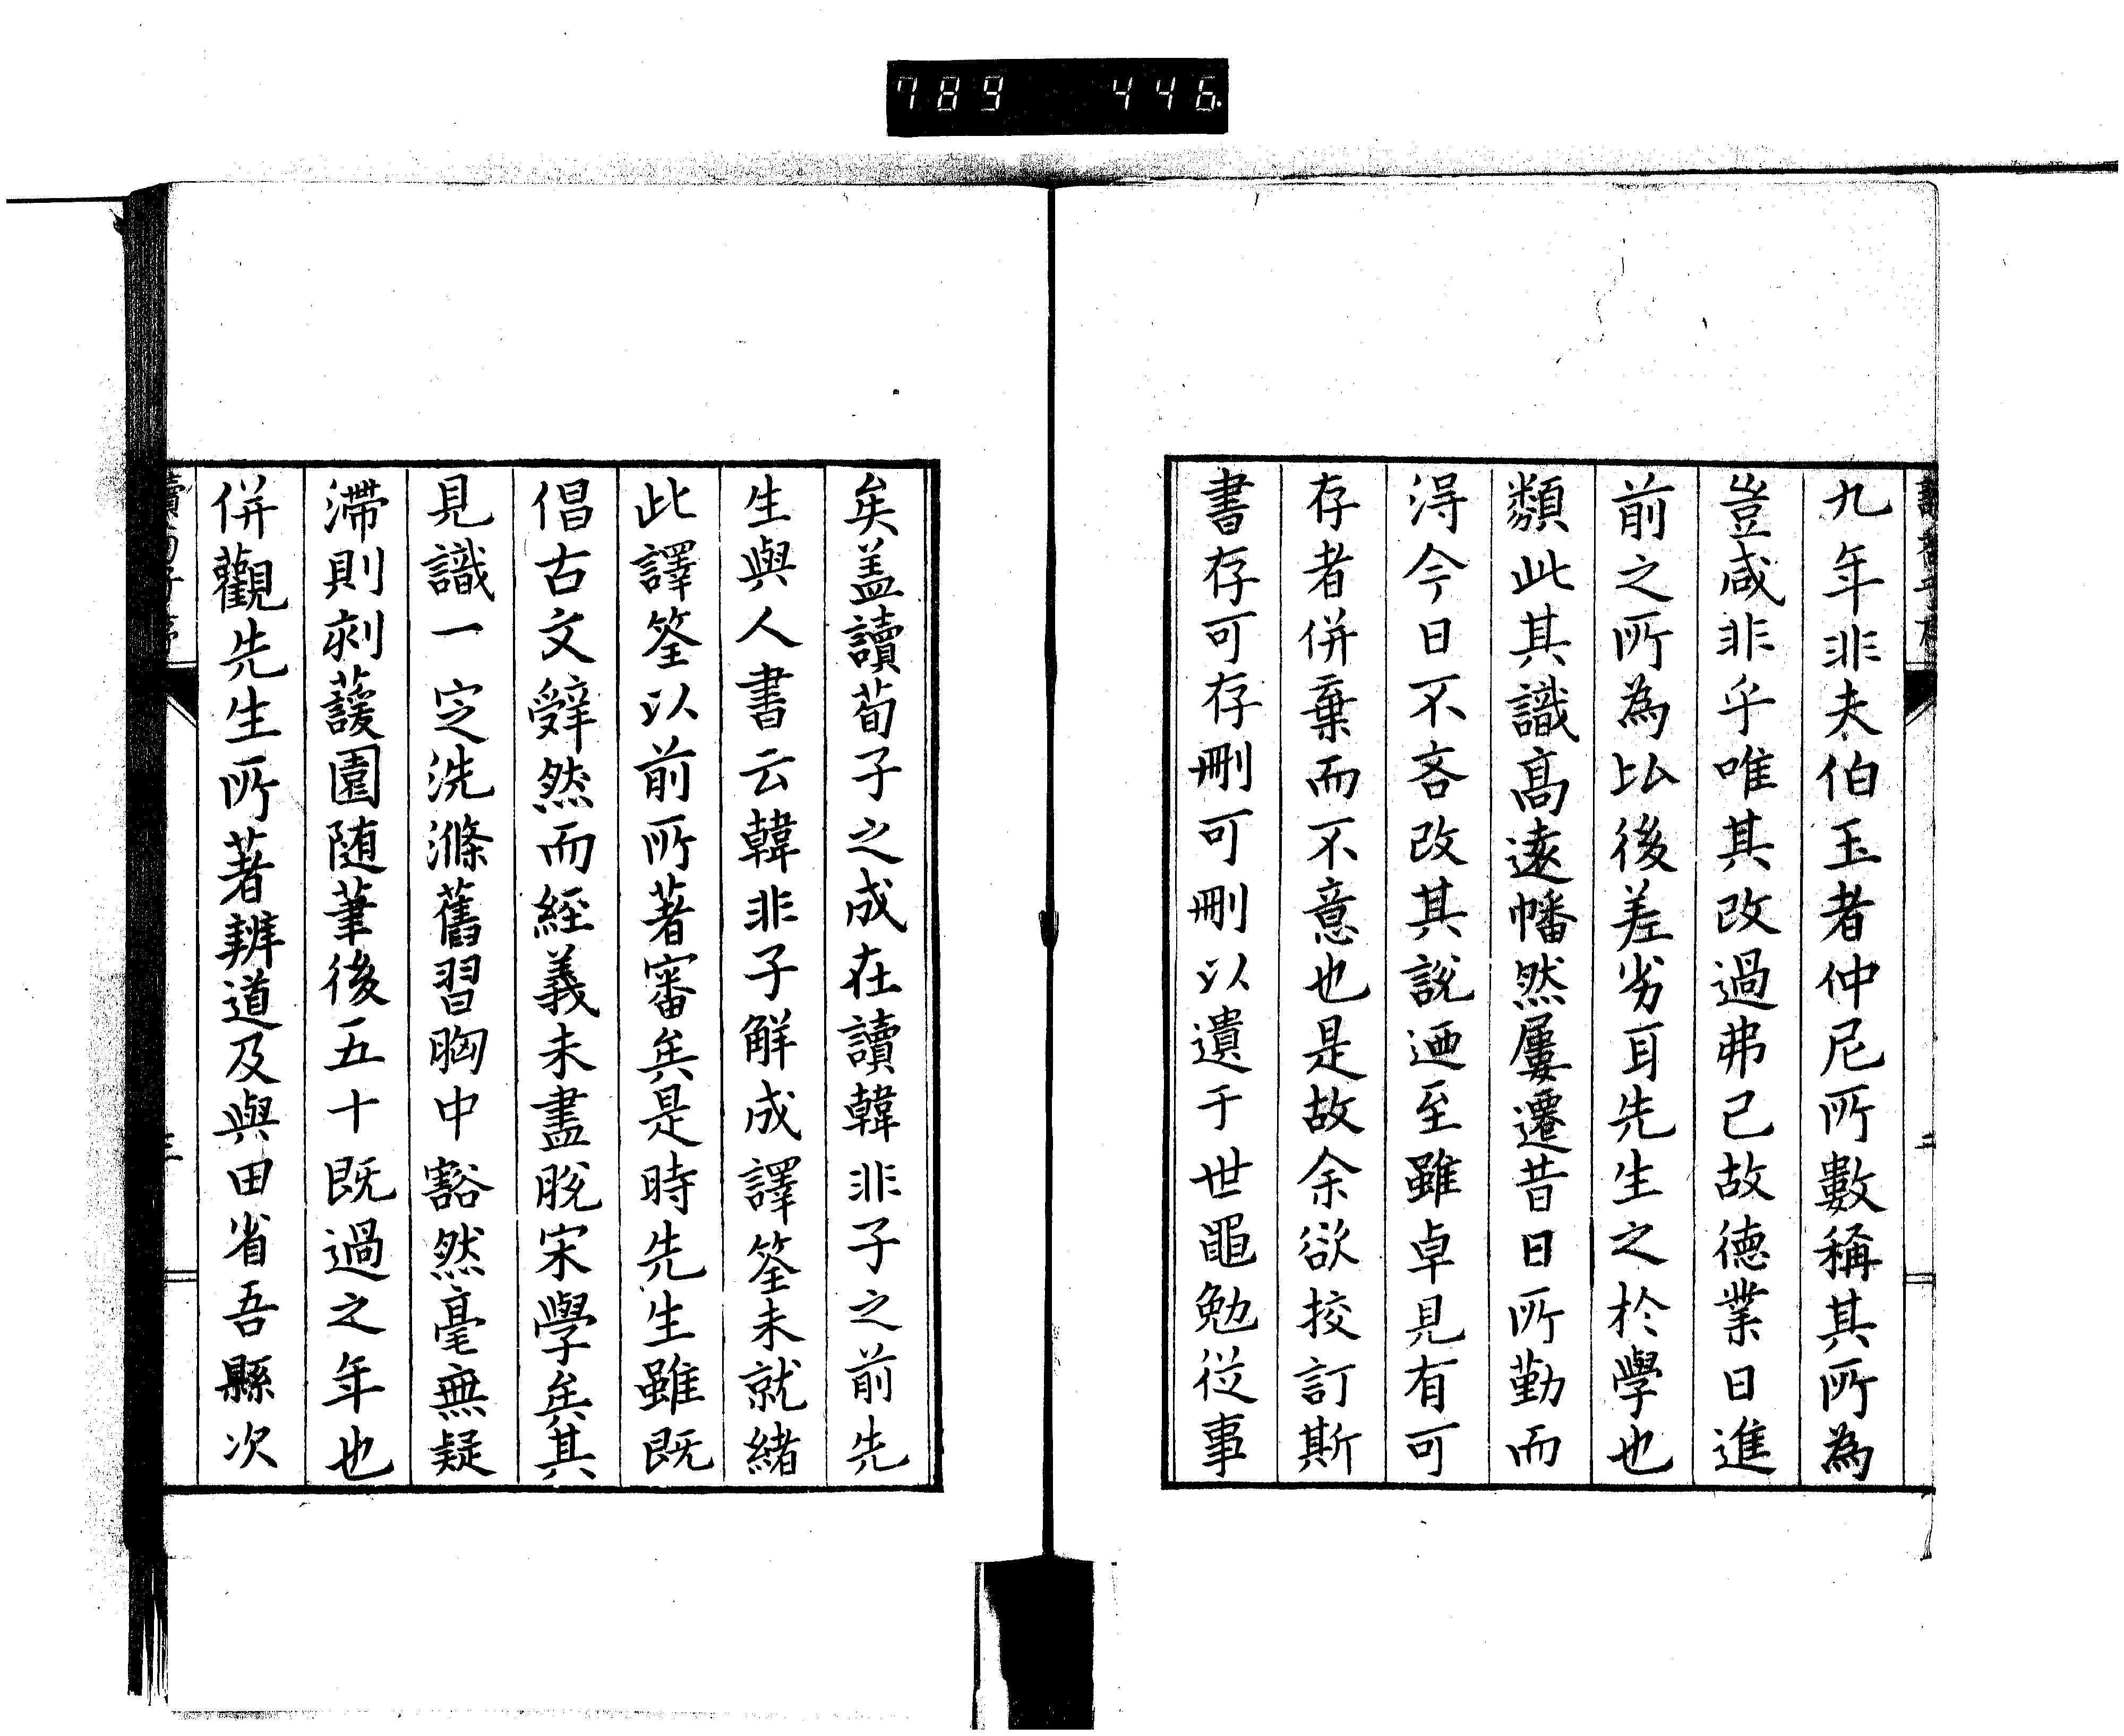 789 446.
九年非夫伯玉者仲尼所數稱其所為
豈咸非乎唯其改過弗已故德業日進
前之所為比後差劣耳先生之於學也
類此其識高遠幡然屢遷昔日所勤而
淂今日不吝改其說迺至雖卓見有可
存者併棄而不意也是故余欲挍訂斯
書存可存刪可刪以遺于世黽勉從事
矣盖讀荀子之成在讀韓非子之前先
生與人書云韓非子解成譯筌未就緒
此譯筌以前所著審矣是時先生雖既
倡古文辭然而經義未盡脫宋學矣其
見識一定洗滌舊習胸中豁然毫無疑
滯則剥蘐園随筆後五十既過之年也
併觀先生所著辨道及與田省吾縣次
讀荀子序
三
二